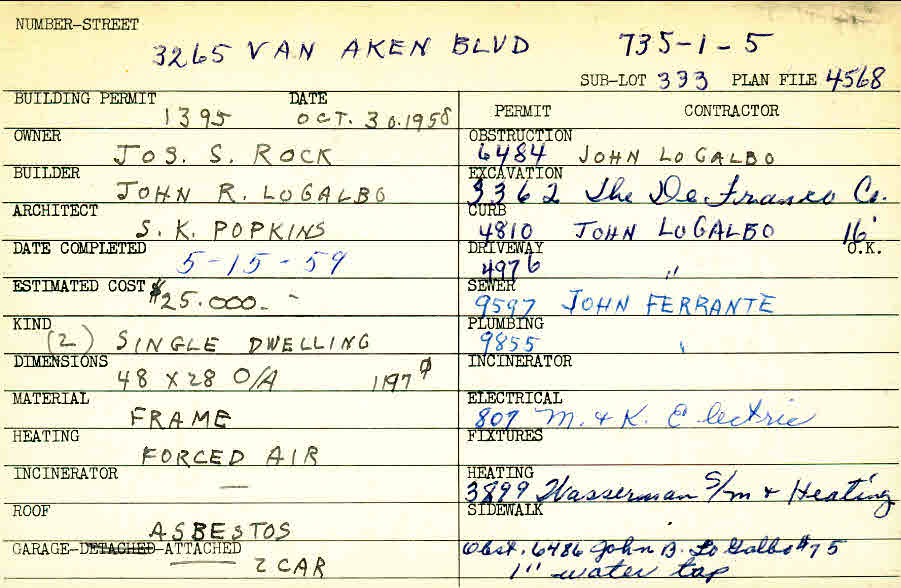 NUMBER-STREET
3265 VAN AKEN BLVD 735-1-5
SUB-LOT 333 PLAN FILE 4568
BUILDING PERMIT DATE
1395 OCT. 30.1958
OWNER
JOS. S. ROCK
BUILDER
JOHN R. LOGALBO
ARCHITECT
S. K. POPKINS
DATE COMPLETED
5-15-59
ESTIMATED COST $25.000.-
KIND
(2) SINGLE DWELLING
DIMENSIONS
48 X 28 O/A 1197
MATERIAL
FRAME
HEATING
FORCED AIR
INCINERATOR
—
ROOF
ASBESTOS
GARAGE-DETACHED-ATTACHED
2 CAR
PERMIT CONTRACTOR
OBSTRUCTION
6484 JOHN LO GALBO
EXCAVATION
3362 The De Franco Co.
CURB
4810 JOHN LOGALBO 16'
DRIVEWAY O.K.
4976 "
SEWER
9597 JOHN FERRANTE
PLUMBING
9855
INCINERATOR
ELECTRICAL
807 M. & K. Electric
FIXTURES
HEATING
3899 Wasserman S/m & Heating
SIDEWALK
Obst. 6486 John B. Lo Galbo #75
1" water tap